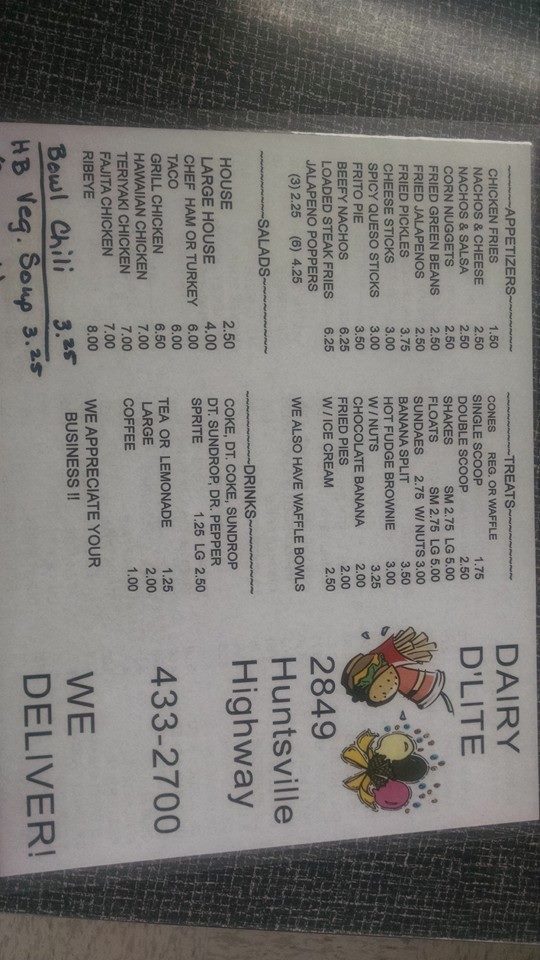 ~~~~~APPETIZERS~~~~~
CHICKEN FRIES 1.50
NACHOS & CHEESE 2.50
NACHOS & SALSA 2.50
CORN NUGGETS 2.50
FRIED GREEN BEANS 2.50
FRIED JALAPENOS 2.50
FRIED PICKLES 3.75
CHEESE STICKS 3.00
SPICY QUESO STICKS 3.00
FRITO PIE 3.50
BEEFY NACHOS 6.25
LOADED STEAK FRIES 6.25
JALAPENO POPPERS
(3) 2.25 (6) 4.25
~~~~~SALADS~~~~~
HOUSE 2.50
LARGE HOUSE 4.00
CHEF HAM OR TURKEY 6.00
TACO 6.00
GRILL CHICKEN 6.50
HAWAIIAN CHICKEN 7.00
TERIYAKI CHICKEN 7.00
FAJITA CHICKEN 7.00
RIBEYE 8.00
Bowl Chili 3.25
HB Veg. Soup 3.25
~~~~~TREATS~~~~~
CONES REG. OR WAFFLE
SINGLE SCOOP 1.75
DOUBLE SCOOP 2.50
SHAKES SM 2.75 LG 5.00
FLOATS SM 2.75 LG 5.00
SUNDAES 2.75 W/ NUTS 3.00
BANANA SPLIT 3.50
HOT FUDGE BROWNIE 3.00
W / NUTS 3.25
CHOCOLATE BANANA 2.00
FRIED PIES 2.00
W / ICE CREAM 2.50
WE ALSO HAVE WAFFLE BOWLS
~~~~~DRINKS~~~~~
COKE, DT. COKE, SUNDROP
DT. SUNDROP, DR. PEPPER
SPRITE 1.25 LG 2.50
TEA OR LEMONADE 1.25
LARGE 2.00
COFFEE 1.00
WE APPRECIATE YOUR
BUSINESS !!
DAIRY
D'LITE
2849
Huntsville
Highway
433-2700
WE
DELIVER!